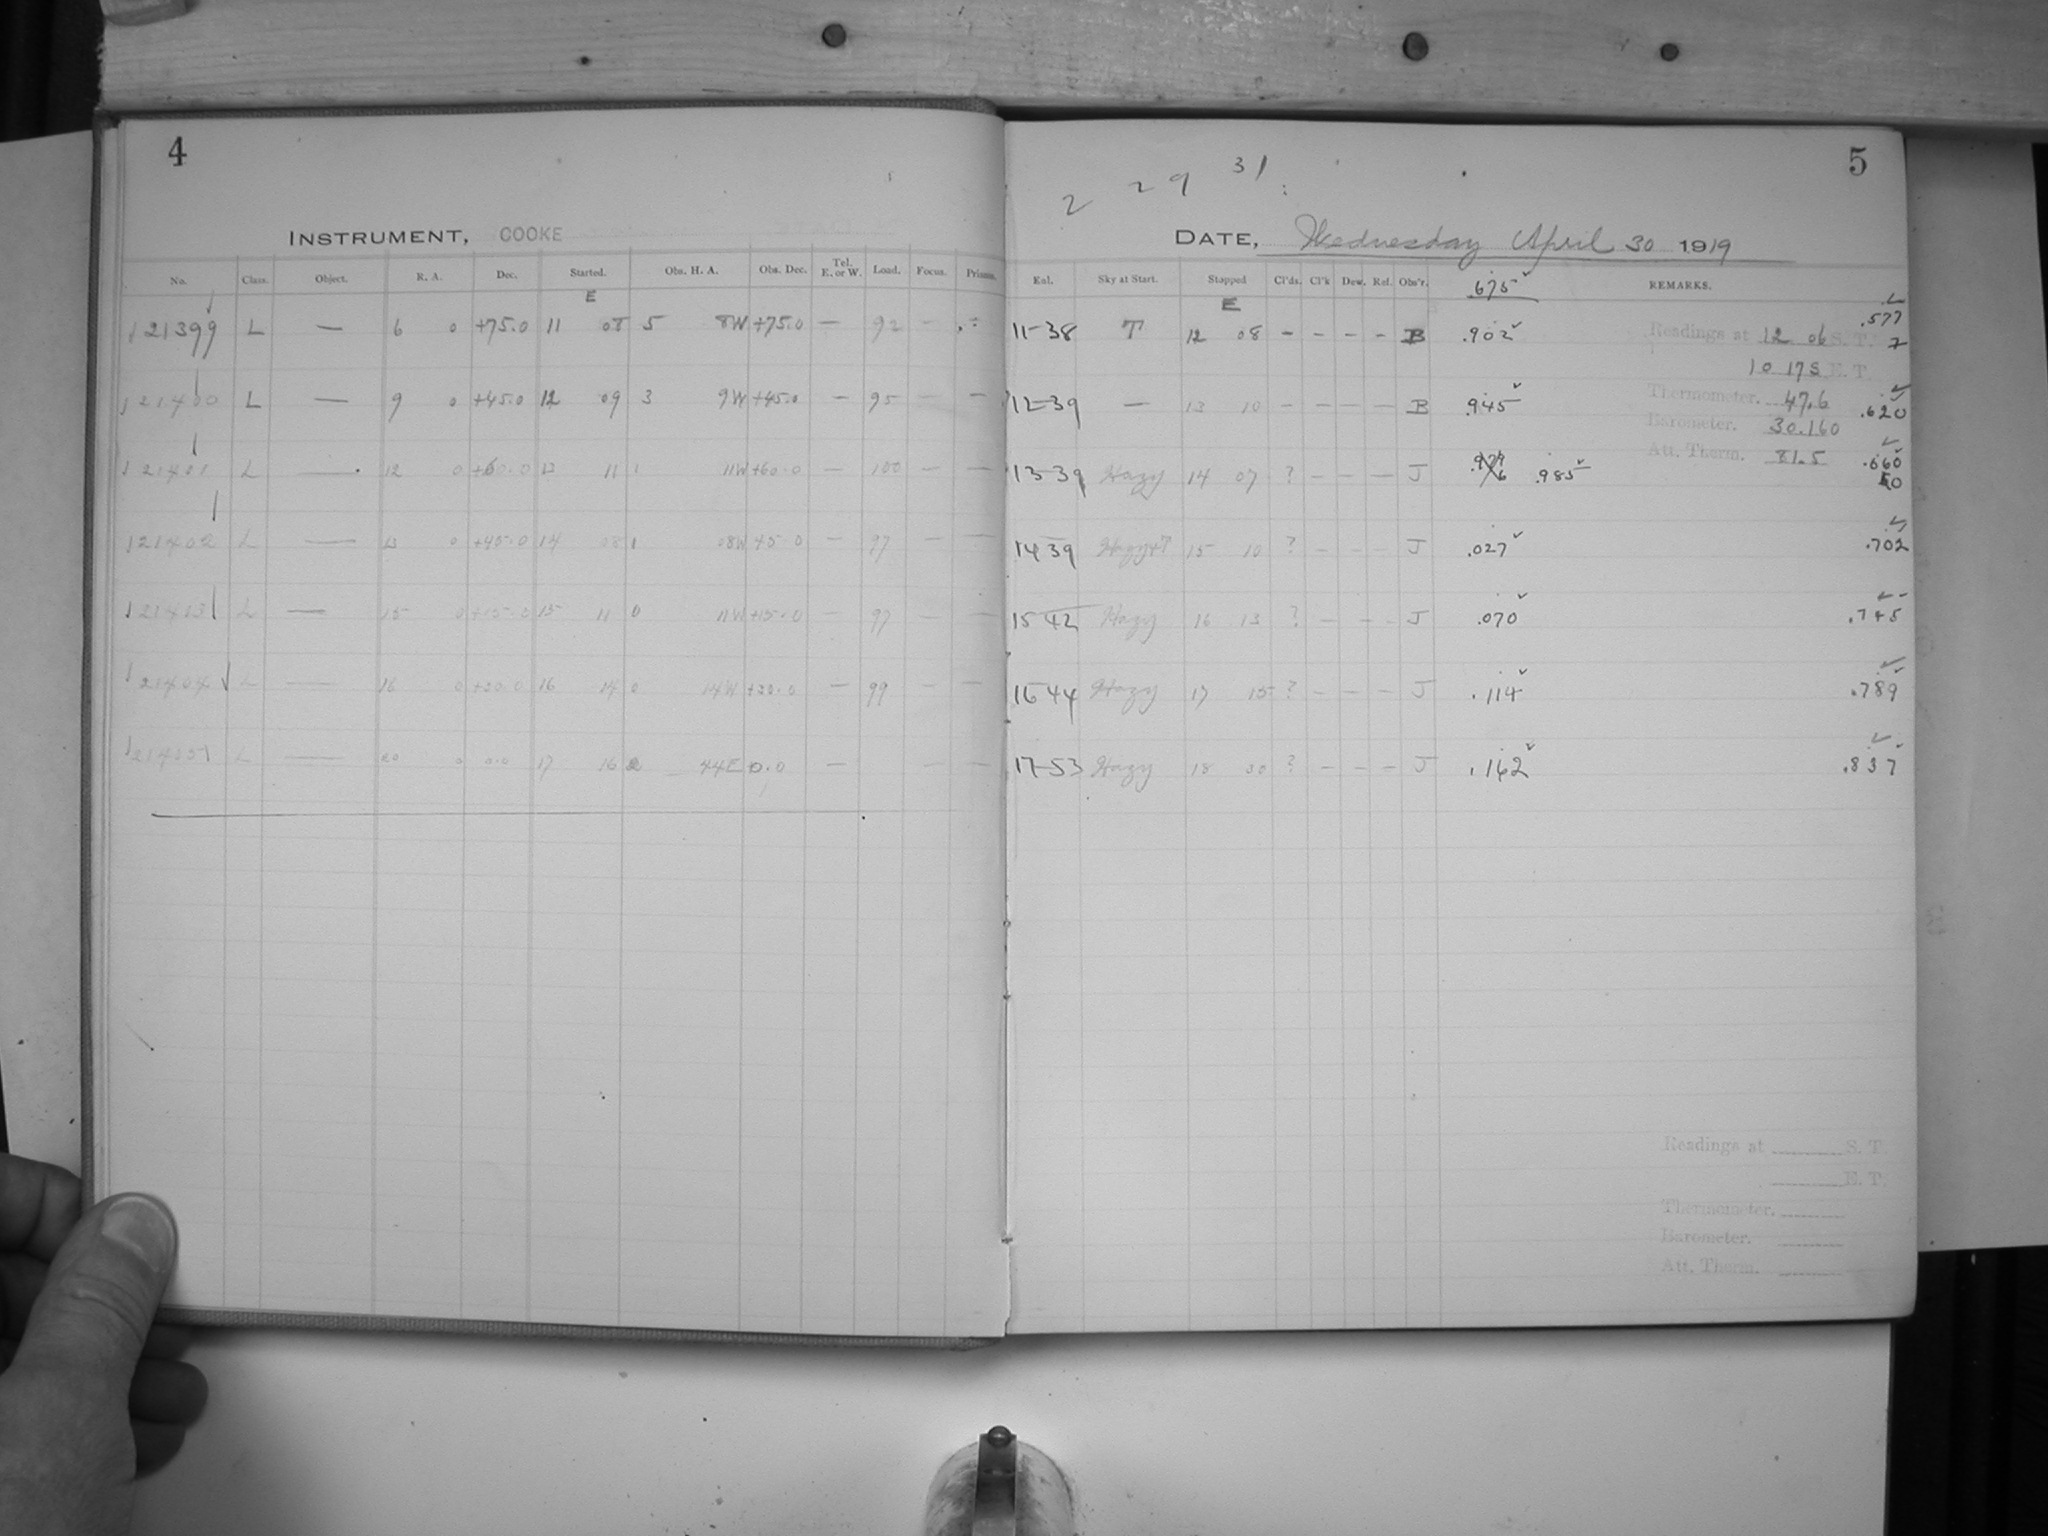 4
INSTRUMENT, COOKE
No. Class. Object. R. A. Dec. Started. Obs. H. A. Obs. Dec. Tel. E. or W. Load. Focus. Prisms.
E
21399 L — 6 0 +75.0 11 08 5 8W +75.0 — 92 —
21400 L — 9 0 +45.0 12 09 3 9W +45.0 — 95 — —
21401 L — 12 0 +60.0 13 11 1 11W +60.0 — 100 — —
21402 L — 13 0 +45.0 14 08 1 08W 45.0 — 97 — —
21403 L — 15 0 +15.0 15 11 0 11W +15.0 — 97 — —
21404 L — 16 0 +30.0 16 14 0 14W +30.0 — 99 — —
21405 L — 20 0 0.0 17 16 2 44E 0.0 — — —
5
2 29 31
DATE, Wednesday April 30 1919
Eal. Sky at Start. Stopped Cl'ds. Cl'k Dew. Ref. Obs'r. .675 REMARKS.
E
11-38 T 12 08 — — — — B .902 .577
12-39 — 13 10 — — — — B .945 .620
13-39 Hazy 14 07 ? — — — J .985 .660
14 39 Hazy+T 15 10 ? — — — J .027 .702
15 42 Hazy 16 13 ? — — - J .070 .745
16 44 Hazy 17 15 ? — — — J .114 .789
17-53 Hazy 18 30 ? — — — J .162 .837
Readings at 12 06 S. T.
10 17S E. T.
Thermometer. 47.6
Barometer. 30.160
Att. Therm. 81.5
Readings at S. T
E. T.
Thermometer.
Barometer.
Att. Therm.